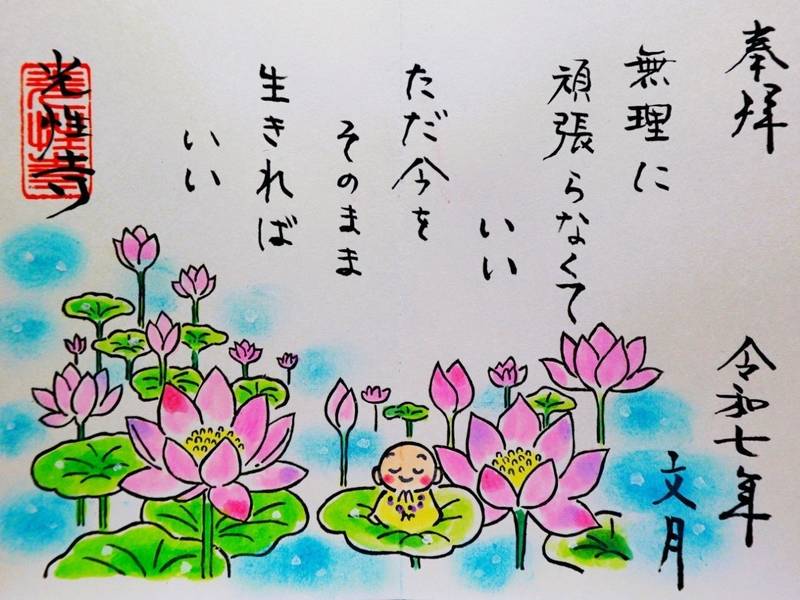 奉拝
令和七年
文月
無理に
頑張らなくて
いい
ただ今を
そのまま
生きれば
いい
光性寺